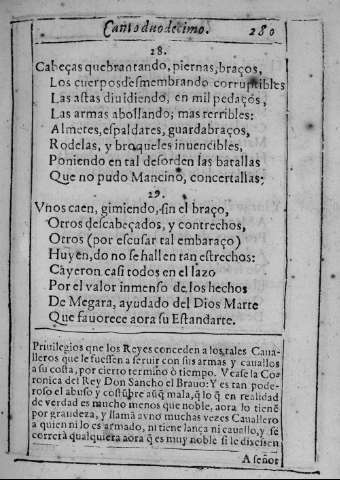 Canto duodecimo. 280
28.
Cabeças quebrantando, piernas, braços,
Los cuerpos desmembrando corruptibles
Las astas diuidiendo, en mil pedaços,
Las armas abollando; mas terribles:
Almetes, espaldares, guardabraços,
Rodelas, y broqueles inuencibles,
Poniendo en tal desorden las batallas
Que no pudo Mancino, concertallas:
29.
Vnos caen, gimiendo, sin el braço,
Otros descabeçados, y contrechos,
Otros (por escusar tal embaraço)
Huyen, do no se hallen tan estrechos:
Cayeron casi todos en el lazo
Por el valor inmenso de los hechos
De Megara, ayudado del Dios Marte
Que fauorece aora su Estandarte.
Priuilegios que los Reyes conceden a los tales Caua-
lleros que le fuessen a seruir con sus armas y cauallos
a su costa, por cierto termino ò tiempo. Vease la Co-
ronica del Rey Don Sancho el Brauo: Y es tan pode-
roso el abuso y costũbre aũq̃ mala, q̃ lo q̃ en realidad
de verdad es mucho menos que noble, aora lo tienẽ
por grandeza, y llamã avno muchas vezes Cauallero
a quien ni lo es armado, ni tiene lança ni cauallo, y se
correrà qualquiera aora q̃ es muy noble si le dixesen
A señor